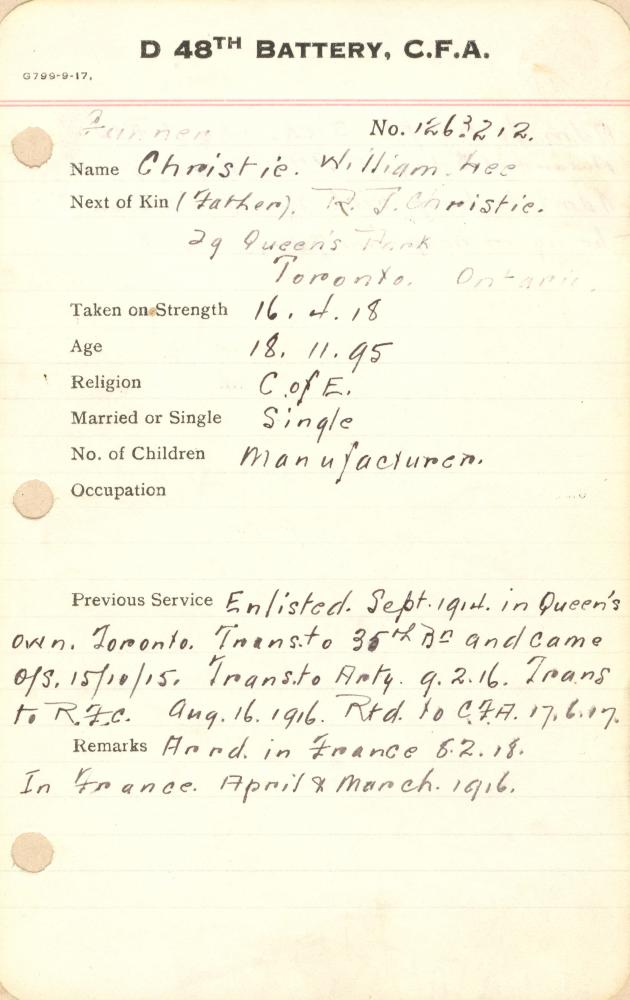 D 48TH BATTERY, C.F.A.
G799-9-17.
Gunner No. 1263212.
Name Christie. William Lee
Next of Kin (Father). R. J. Christie.
29 Queen's Park
Toronto. Ontario.
Taken on Strength 16. 4. 18
Age 18. 11. 95
Religion C. of E.
Married or Single Single
No. of Children Manufacturer.
Occupation
Previous Service Enlisted. Sept. 1914. in Queen's
own. Toronto. Trans. to 35th Bn and came
O/S. 15/10/15. Trans. to Arty. 9. 2. 16. Trans
to R.F.C. Aug. 16. 1916. Rtd. to C.F.A. 17. 6. 17.
Remarks Arrd. in France 8. 2. 18.
In France. April & March. 1916.